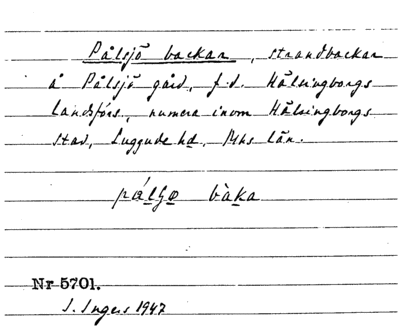 Pålsjö backar, strandbackar
å Pålsjö gård, f.d. Hälsingborgs
landsförs., numera inom Hälsingborgs
stad, Luggude hd, Mhs län.
bàka
Nr 5701.
I. Ingers 1947